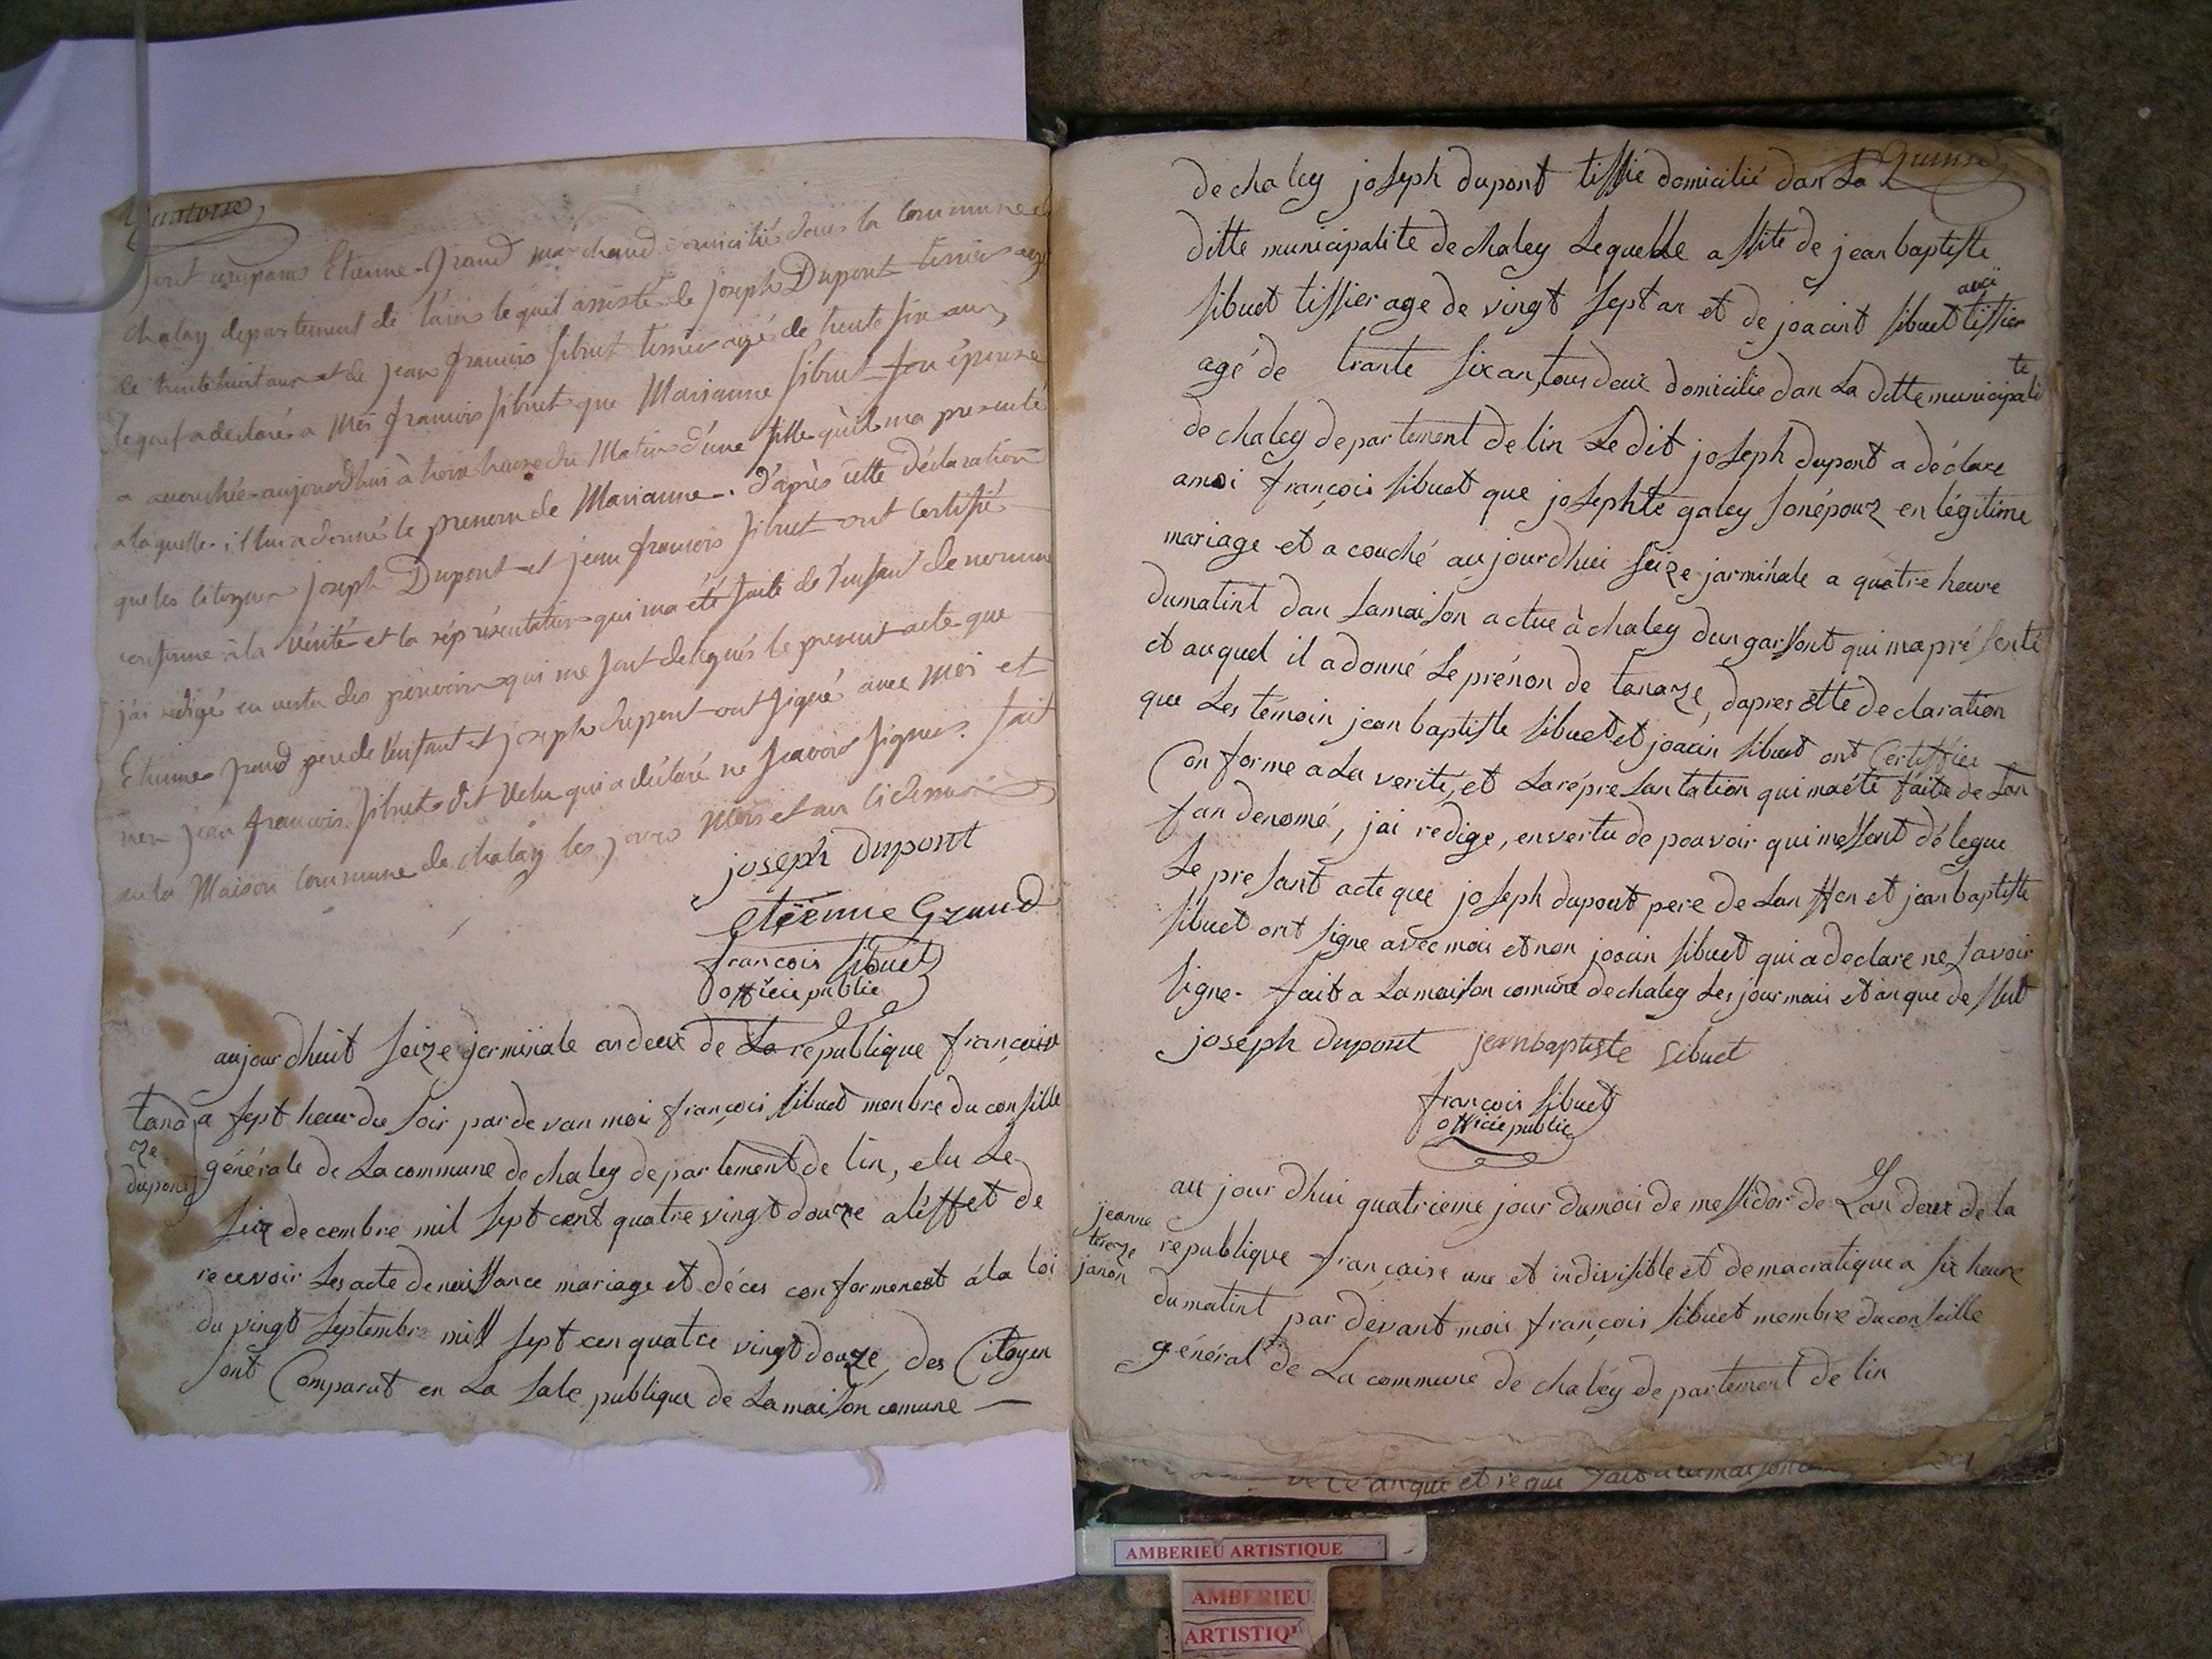 quatorze
sont comparus Etienne Grand marchand domicilié dans la Commune de
chaley departement de l'ain lequel assisté de joseph Dupont tissier agé
de trente huit ans et de jean francois sibuet tissier agé de trente six ans,
lequel a déclaré a Moi francois sibuet que Marianne sibuet son épouse
a accouchée aujourdhui à trois heures du Matin d'une fille qu'il ma presenté
a laquelle il lui a donné le prenom de Marianne. d'après cette déclaration
que les citoyens joseph Dupont et jean francois sibuet ont certifié
conforme à la vérité et la réprésentation qui ma été faite de l'enfant denommé
j'ai rédigé en vertu des pouvoirs qui me sont delegués le present acte que
Etienne grand pere de l'enfant et joseph dupont ont signé avec Moi et
non jean francois sibuet dit qui a déclaré ne scavoir signer. fait
en la Maison Commune de chaley les jours Mois et an ci dessus
joseph dupont
etiënne Grand
francois sibuet
officie public
aujourdhuit seize jerminale an deux de La republique françaisse
tana a sept heur du soir par de van moi françois sibuet menbre du consille
ze générale de La commune de chaley departement de lin, elu Le
dupont
six decembre mil sept cent quatre vingt douze a léffet de
recevoir Les acte de naissance mariage et déces conformenent á la loi
du vingt septembre mill sept cen quatre vingt douze, des Citoyen
sont Comparut en La sale publique de La maison comune —
Quinse
de chaley joseph dupont tissié domicilié dan La
ditte municipalite de chaley Lequelle assite de jean baptiste
sibuet tissier age de vingt sept an et de joacint sibuet auci tissier
agé de trante six an, tous deux domicilie dan La ditte municipalité
de chaley departement de lin Le dit joseph dupont a déclare
a moi françois sibuet que josephte galey son épouz en légitime
mariage et a couché au jourdhui seize jarminale a quatre heure
du matint dan sa maison a ctue à chaley dun garsont qui ma pré senté
et auquel il a donné Le prénon de tanaze, dapres cette declaration
que Les témoin jean baptiste sibuet et joacin sibuet ont Certiffier
Conforme a La verité, et La répresantation qui ma été faite de Lan
fan denomé, jai redige, en vertu de pouvoir qui me sont délegue
Le presant acte que joseph dupont pere de Lanffen et jean baptiste
sibuet ont signe avec mois et non joacin sibuet qui a declare ne savoir
signe. fait a La maison comune de chaley Les jour mais et an que dessut
joséph dupont jean baptiste sibuet
francois sibuet
officie public
au jour dhui quatrieme jour du moi de messidor de Lan deux de la
jeanne
tereze
janon
republique française une et indivisible et demacratique a six heure
du matint par devant mois françois sibuet membre du conseille
général de La commune de chaley departement de lin
fait a la maison
AMBERIEU ARTISTIQUE
AMBERIEU
ARTISTIQ